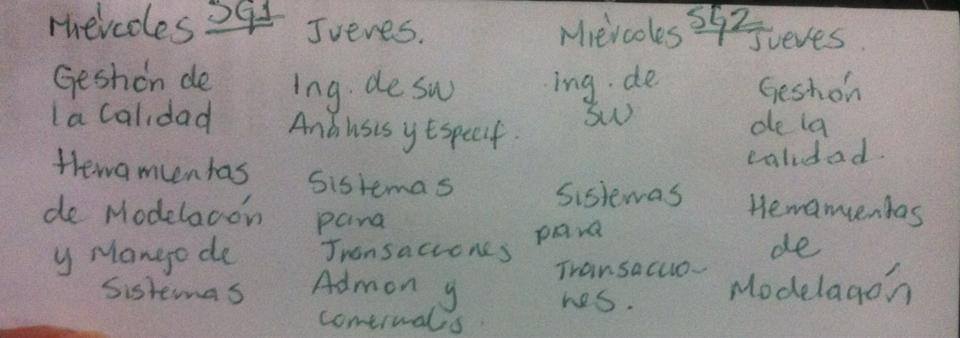 Miércoles SG1 Jueves.
Gestión de
la Calidad
Herramientas
de Modelación
y Manejo de
Sistemas
Ing. de SW
Análisis y Especif.
Sistemas
para
Transacciones
Admon y
comerciales.
Miércoles SG2 Jueves.
ing. de
SW
Sistemas
para
Transaccio-
nes.
Gestión
de la
calidad.
Herramientas
de
Modelación